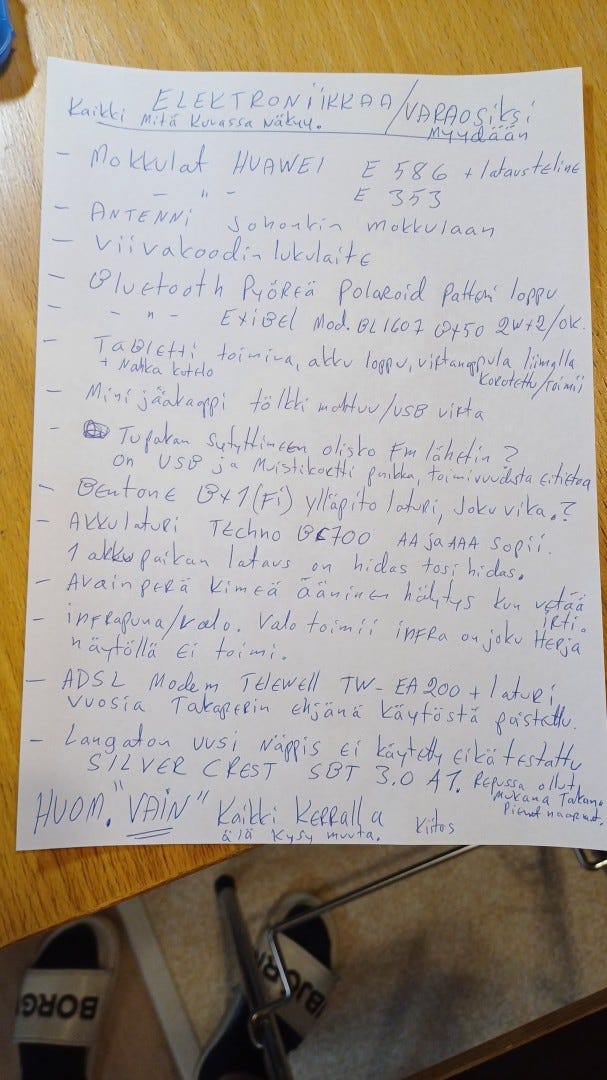 ELEKTRONiiKKAA/VARAOSiKSi
Kaikki Mitä Kuvassa Näkyy. Myydään
- Mokkulat HUAWEI E 586 + latausteline
- " - E 353
- ANTENNi Johonkin mokkulaan
- Viivakoodin lukulaite
- Bluetooth Pyöreä Polaroid Patteri loppu
- - " - EXiBEL Mod. BL1607 2W+2/OK.
- TABLETTi toimiva, akku loppu, virtanappula liimalla
+ Nahka kotelo Korotettu/toimii
- Mini jääkaappi tölkki mahtuu/USB virta
- Tupakan Sytyttimeen olisko Fm lähetin?
on USB ja Muistikortti paikka, toimivuudesta ei tietoa
- BENTONE B+1(Fi) ylläpito laturi, Joku vika.?
- Akkulaturi TEchno BC700 AA ja AAA Sopii.
1 akkupaikan lataus on hidas tosi hidas.
- Avainperä kimeä ääninen hälytys kun vetää
irti.
- infrapuna/valo. Valo toimii iNFRA on joku Herja
näytöllä Ei toimi.
- ADSL Modem TELEWELL TW-EA200 + laturi
Vuosia Takaperin ehjänä käytöstä poistettu.
- Langaton uusi Näppis Ei käytetty eikä testattu
SILVER CREST SBT 3.0 A1. Repussa ollut
mukana Takana
Pienet naarmut.
HUOM. "VAIN" Kaikki Kerralla
älä Kysy muuta. Kiitos
BORG
BJÖRN